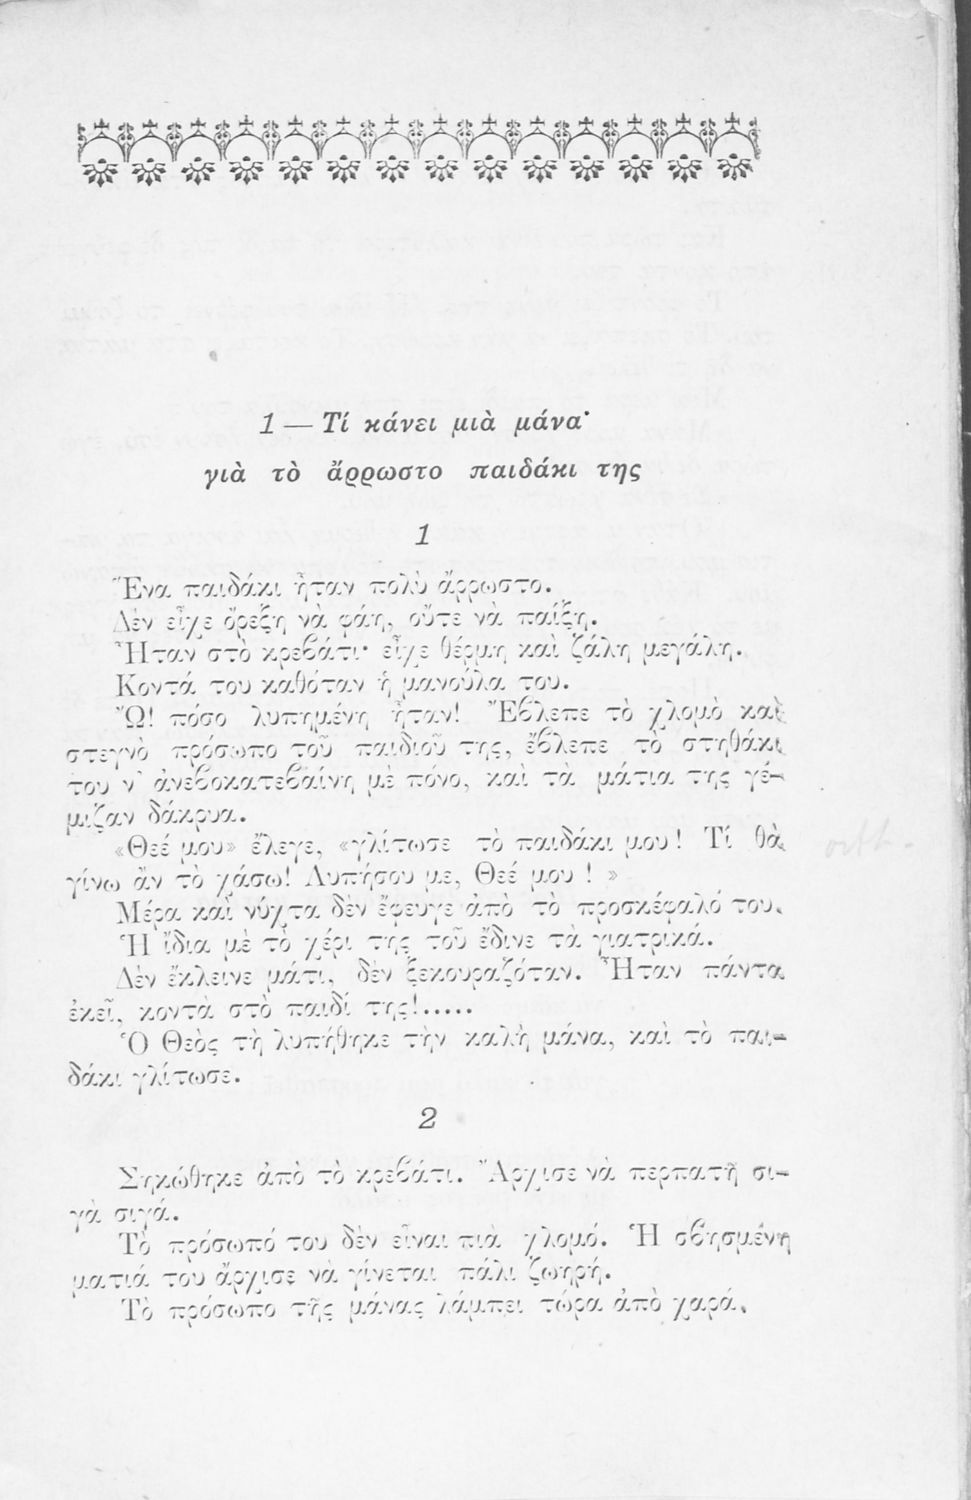 1 — Τί κάνει μιὰ μάνα
γιὰ τὸ ἄρρωστο παιδάκι της
1
Ἕνα παιδάκι ἦταν πολὺ ἄρρωστο.
Δὲν εἶχε ὄρεξη νὰ φάη, οὔτε νὰ παίξη.
Ἦταν στὸ κρεβάτι· εἶχε θέρμη καὶ ζάλη μεγάλη.
Κοντά του καθόταν ἡ μανούλα του.
Ὤ! πόσο λυπημένη ἦταν! Ἔβλεπε τὸ χλομὸ καὶ
στεγνὸ πρόσωπο τοῦ παιδιοῦ της, ἔβλεπε τὸ στηθάκι
του ν' ἀνεβοκατεβαίνη μὲ πόνο, καὶ τὰ μάτια της γέ-
μιζαν δάκρυα.
«Θεέ μου» ἔλεγε, «γλίτωσε τὸ παιδάκι μου! Τί θὰ
γίνω ἂν τὸ χάσω! Λυπήσου με, Θεέ μου! »
Μέρα καὶ νύχτα δὲν ἔφευγε ἀπὸ τὸ προσκέφαλό του.
Ἡ ἴδια μὲ τὸ χέρι της τοῦ ἔδινε τὰ γιατρικά.
Δὲν ἔκλεινε μάτι, δὲν ξεκουραζόταν. Ἦταν πάντα
ἐκεῖ, κοντὰ στὸ παιδί της!.....
Ὁ Θεὸς τὴ λυπήθηκε τὴν καλὴ μάνα, καὶ τὸ παι-
δάκι γλίτωσε.
2
Σηκώθηκε ἀπὸ τὸ κρεβάτι. Ἄρχισε νὰ περπατῆ σι-
γὰ σιγά.
Τὸ πρόσωπό του δὲν εἶναι πιὰ χλομό. Ἡ σβησμένη
ματιά του ἄρχισε νὰ γίνεται πάλι ζωηρή.
Τὸ πρόσωπο τῆς μάνας λάμπει τώρα ἀπὸ χαρά.